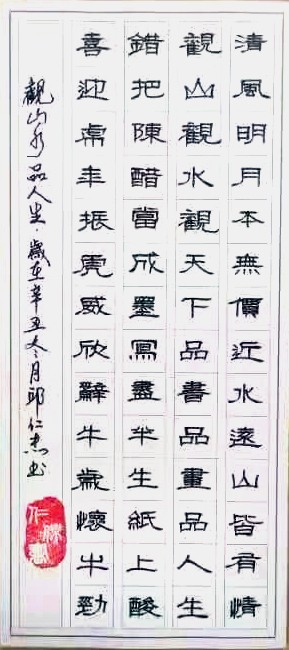 清風明月本無價近水遠山皆有情
觀山觀水觀天下品書品畫品人生
錯把陳醋當成墨寫盡半生紙上酸
喜迎虎年振虎威欣辭牛歲懷牛勁
觀山水品人生·歲在辛丑冬月邱仁杰书